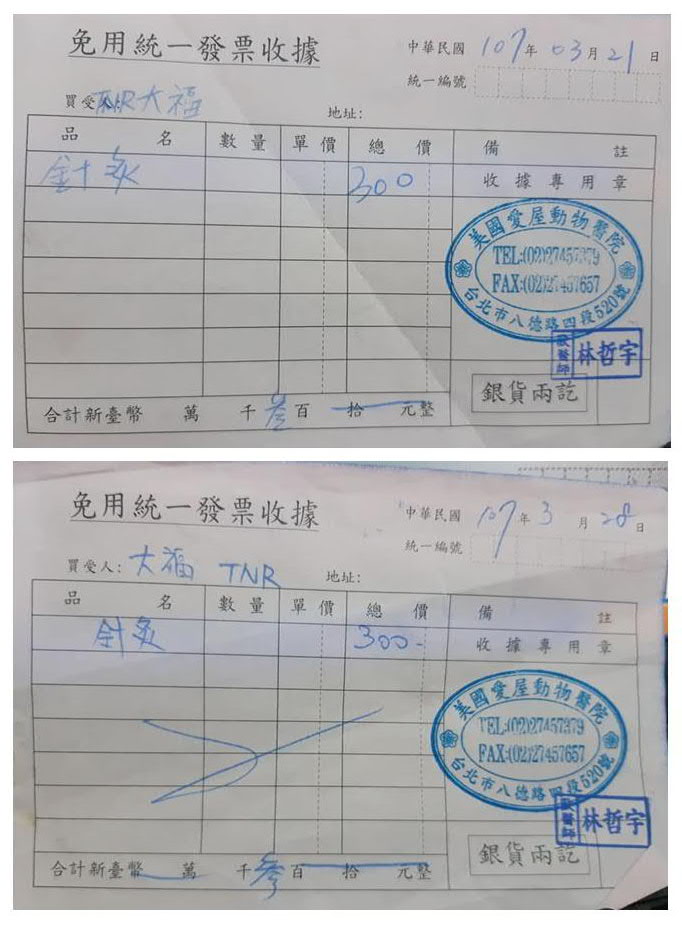 免用統一發票收據
中華民國 107年 03月 21日
統一編號
買受人: TNR大福
地址:
品名 數量 單價 總價 備註
針炙 300 收據專用章
美國愛屋動物醫院
TEL:(02)27457379
FAX:(02)27457657
台北市八德路四段520號
獸醫師 林哲宇
銀貨兩訖
合計新臺幣 萬 千 叁百 拾 元整
免用統一發票收據
中華民國 107年 3月 28日
統一編號
買受人: 大福 TNR
地址:
品名 數量 單價 總價 備註
針炙 300- 收據專用章
美國愛屋動物醫院
TEL:(02)27457379
FAX:(02)27457657
台北市八德路四段520號
獸醫師 林哲宇
銀貨兩訖
合計新臺幣 萬 千 參百 拾 元整